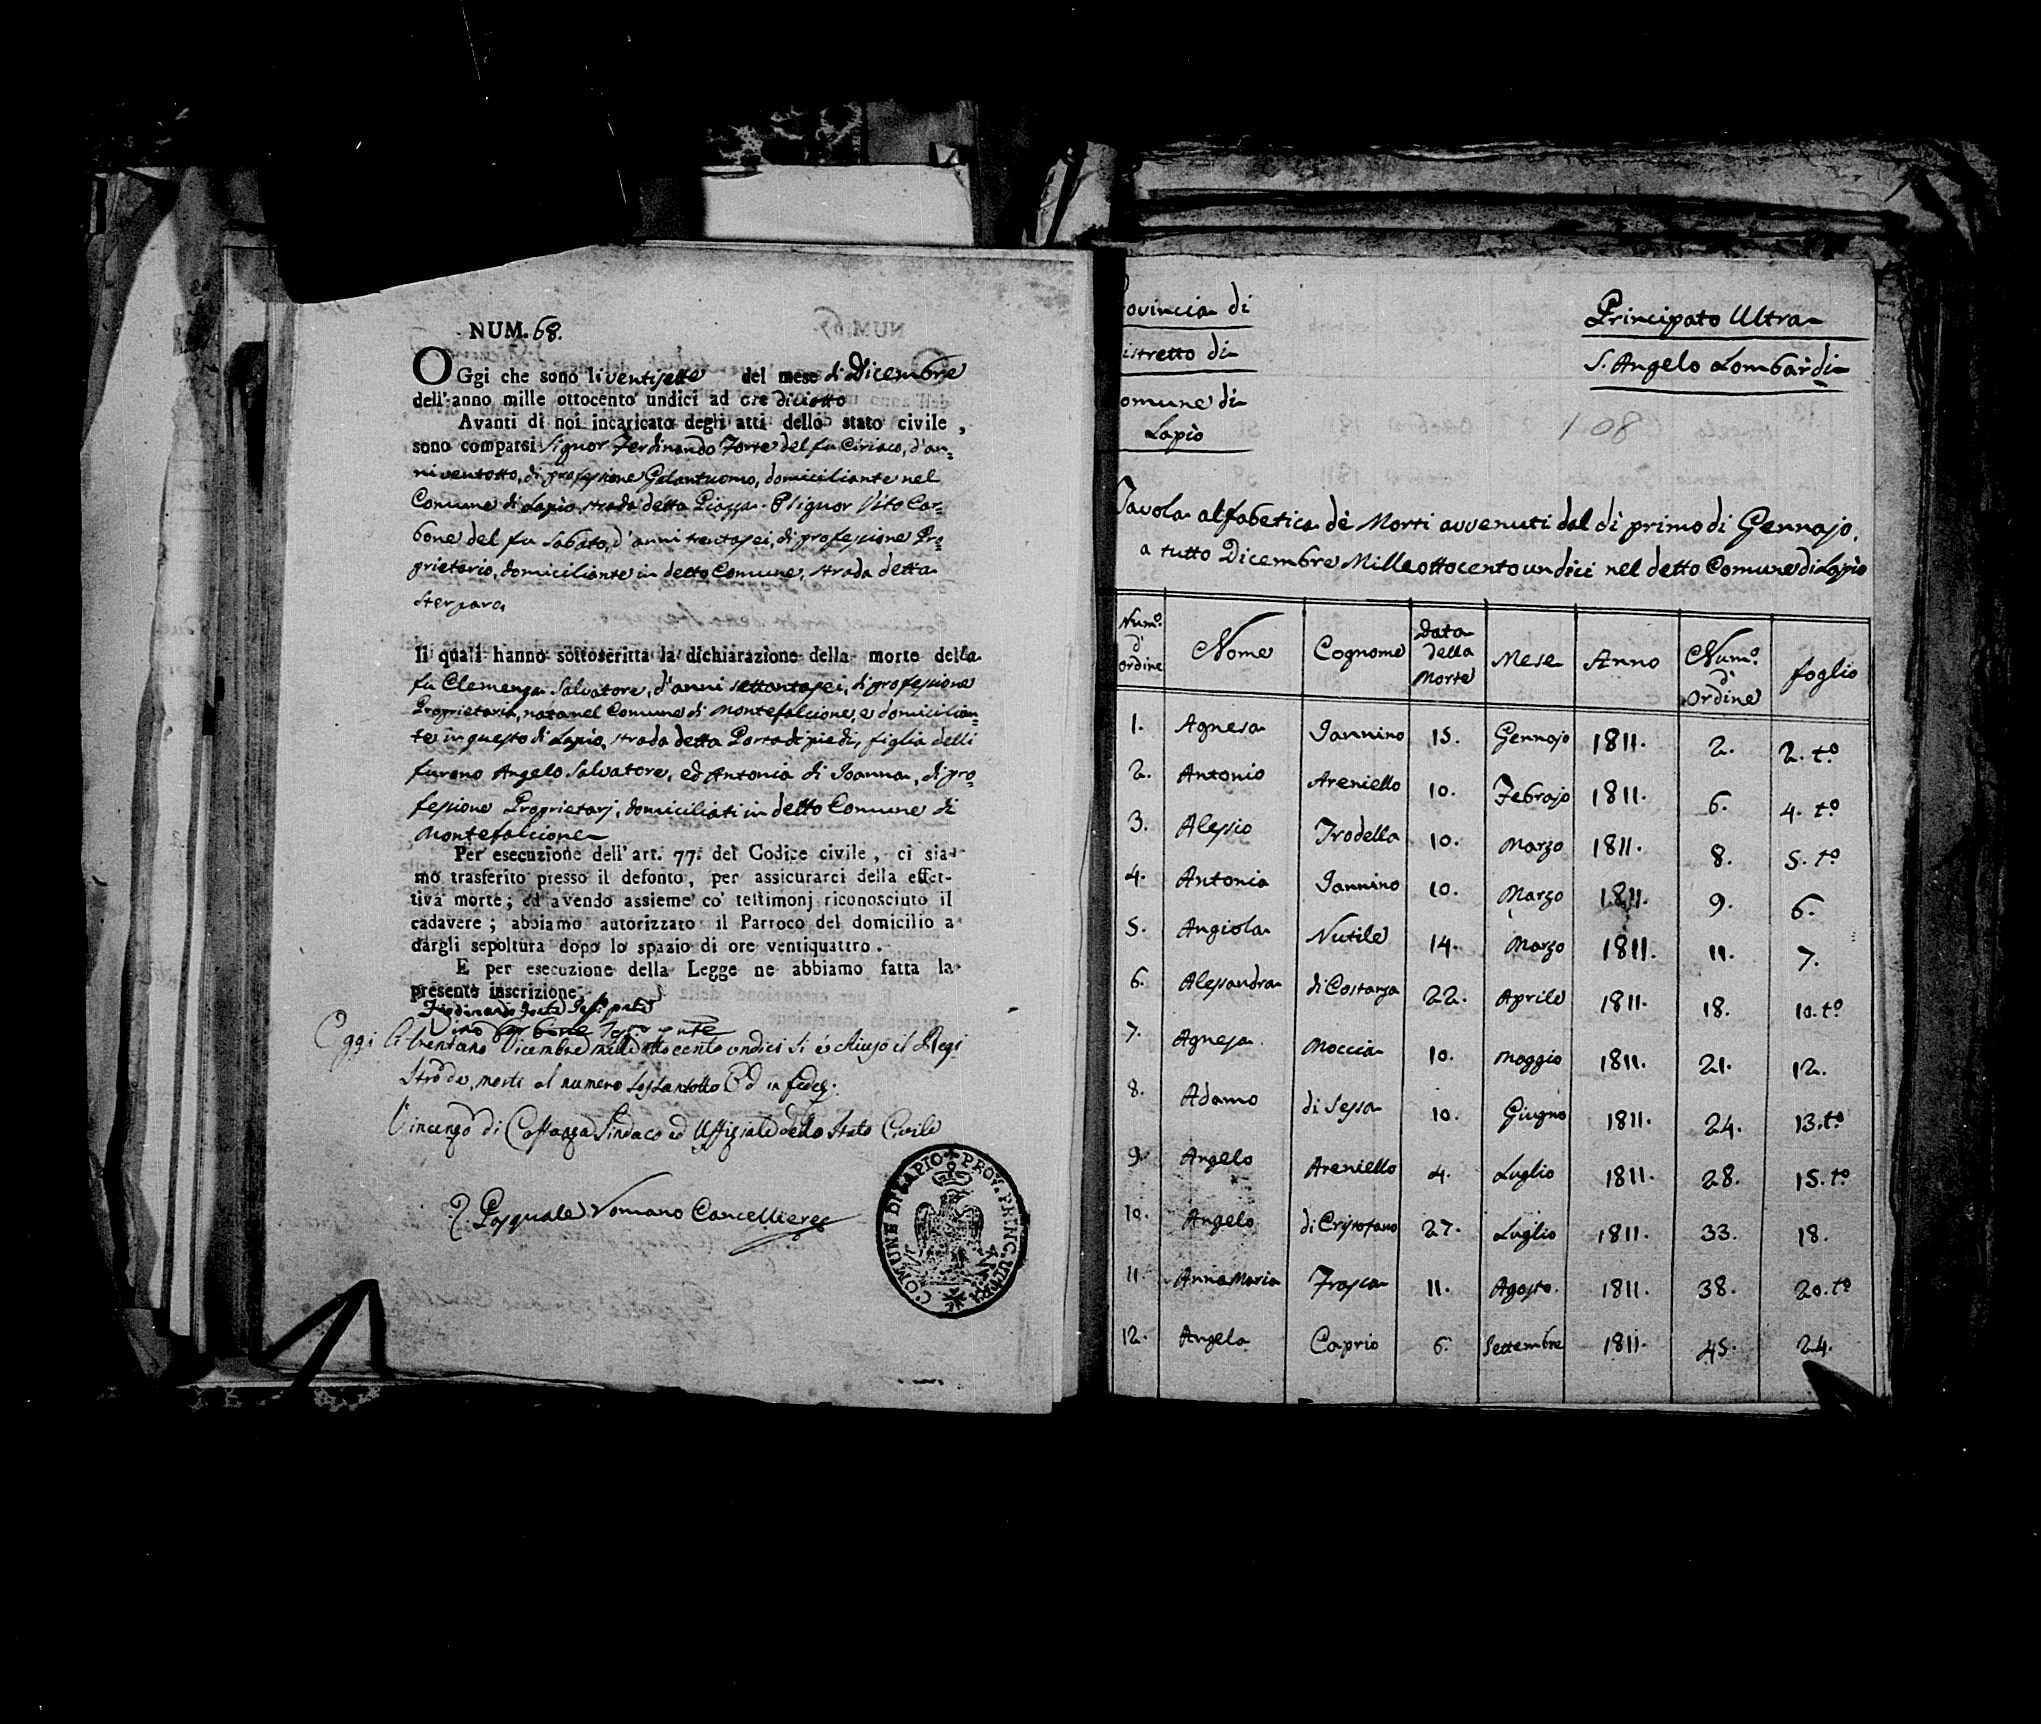 NUM. 68.
OGgi che sono li ventisette del mese di Dicembre
dell'anno mille ottocento undici ad ore diciotto
Avanti di noi incaricato degli atti dello stato civile,
sono comparsi Signor Ferdinando Forte del fu Ciriaco, d'an=
ni ventotto, di professione Galantuomo, domiciliante nel
Comune di Lapio, strada detta Piazza. E Signor Vito Car=
bone del fu Sabato, d'anni trentasei, di professione Pro=
prietario, domiciliante in detto Comune, strada detta
Sterpara
Il quali hanno sottoscritta la dichiarazione della morte della
fu Clemenza Salvatore, d'anni settantasei, di professione
Proprietaria, nata nel Comune di Montefalcione, e domicilian=
te in questo di Lapio, strada detta Porta di piedi, figlia delli
furono Angelo Salvatore, ed Antonia di Ioanna, di pro=
fessione Proprietarj, domiciliati in detto Comune di
Montefalcione
Per esecuzione dell'art. 77. del Codice civile, ci sia-
mo trasferito presso il defonto, per assicurarci della effet-
tiva morte; ed avendo assieme co' testimonj riconosciuto il
cadavere; abbiamo autorizzato il Parroco del domicilio a
dargli sepoltura dopo lo spazio di ore ventiquattro.
E per esecuzione della Legge ne abbiamo fatta la
presente inscrizione.
Ferdinando Forte
Vito Carbone
Oggi li trentuno Dicembre mille ottocento undici si è chiuso il Regi
stro de morti al numero sessantotto Ed in fede
Vincenzo di Costanza Sindaco ed Uffiziale dello Stato Civile
Pasquale Romano Cancelliere
COMUNE DI LAPIO PROV. PRINC. ULTRA
ovincia di Principato Ultra
istretto di S. Angelo Lombardi
omune di
Lapio
108
Tavola alfabetica de Morti avvenuti dal dì primo di Gennajo,
a tutto Dicembre Milleottocentoundici nel detto Comune di Lapio
Num.º d' ordine Nome Cognome Data della Morte Mese Anno Num.º d' Ordine foglio
1. Agnesa Iannino 15. Gennajo 1811. 2. 2. tº
2. Antonio Areniello 10. Febrajo 1811. 6. 4. tº
3. Alessio Trodella 10. Marzo 1811. 8. 5. tº
4. Antonia Iannino 10. Marzo 1811. 9. 6.
5. Angiola Nutile 14. Marzo 1811. 11. 7.
6. Alessandra di Costanza 22. Aprile 1811. 18. 10. tº
7. Agnesa Moccia 10. Maggio 1811. 21. 12.
8. Adamo di Sessa 10. Giugno 1811. 24. 13. tº
9. Angelo Areniello 4. Luglio 1811. 28. 15. tº
10. Angelo di Cristofano 27. Luglio 1811. 33. 18.
11. Anna Maria Frasca 11. Agosto. 1811. 38. 20. tº
12. Angela Caprio 6. Settembre 1811. 45. 24.